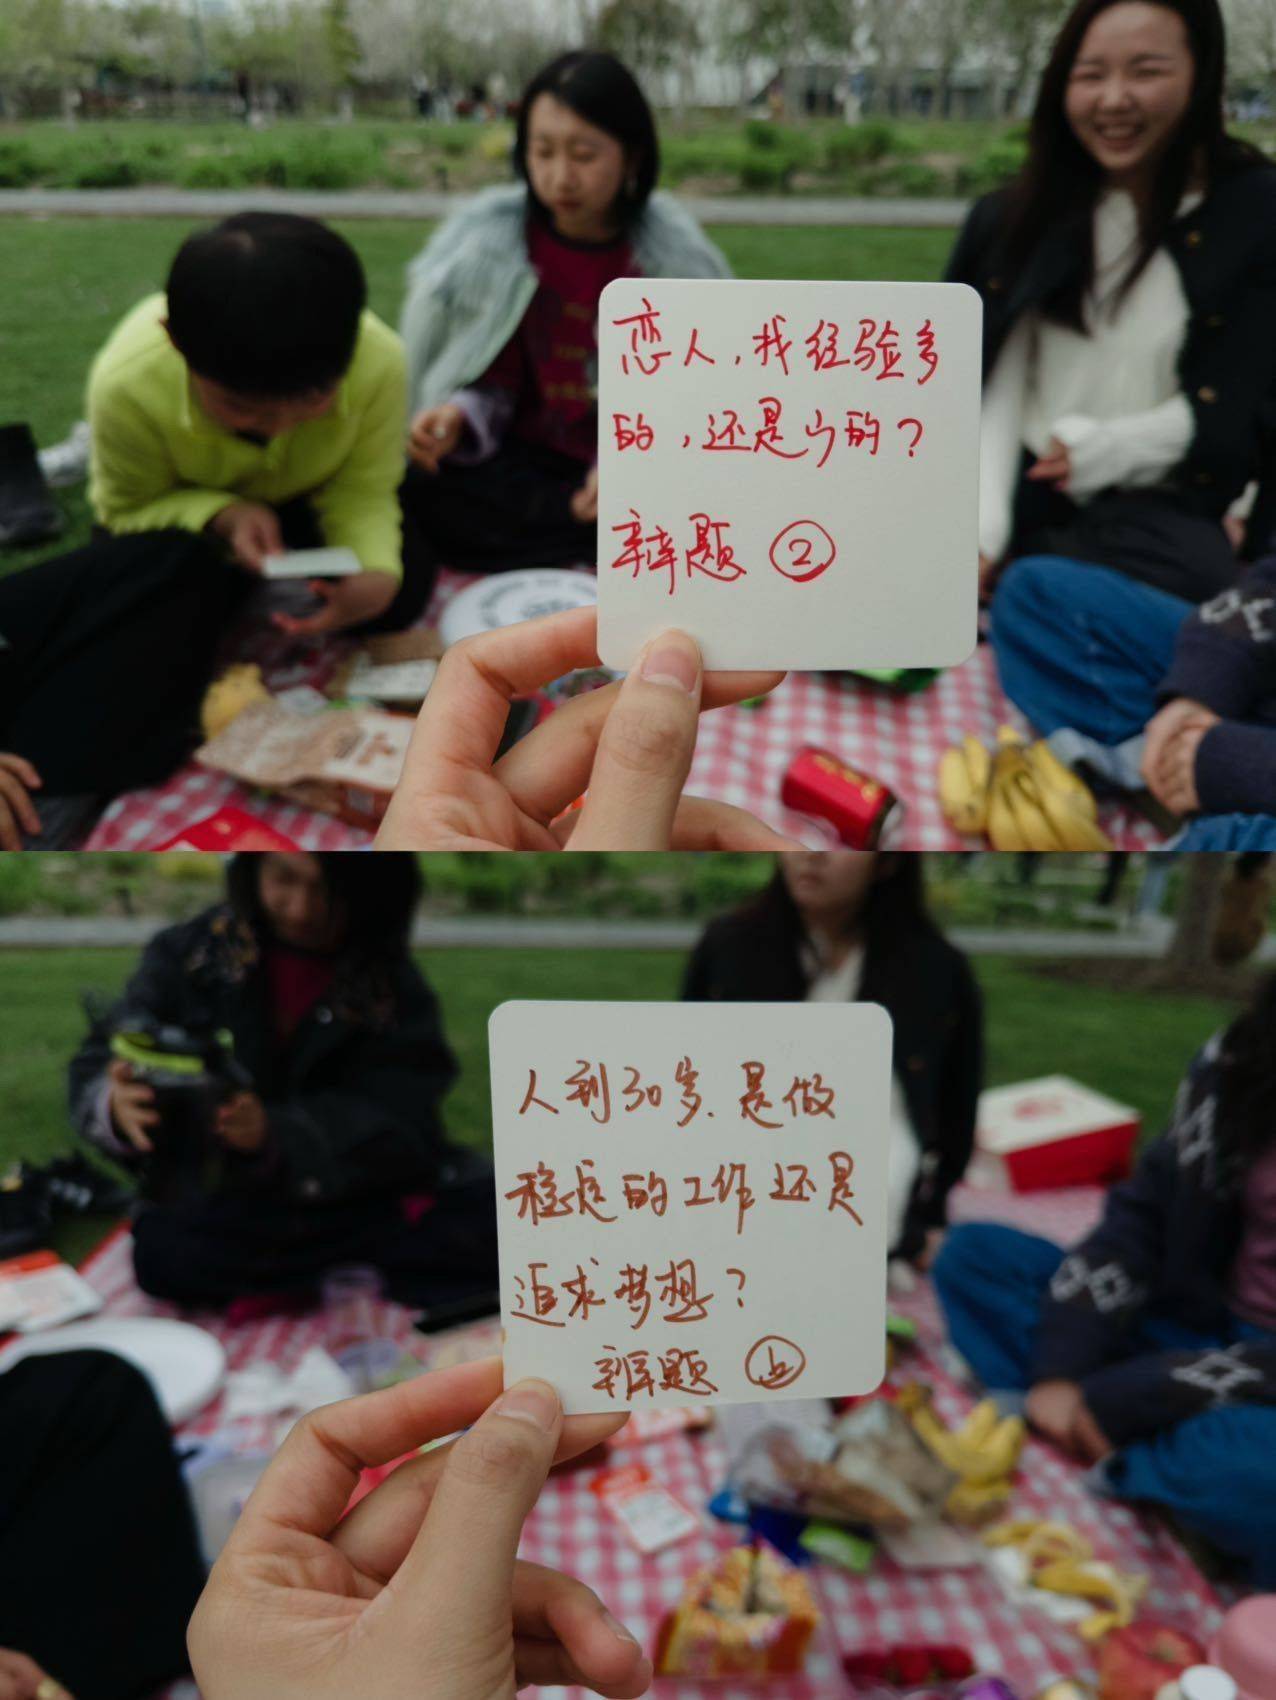 恋人,找经验多
的,还是少的?
辩题 ②
人到30岁、是做
稳定的工作还是
追求梦想?
辩题